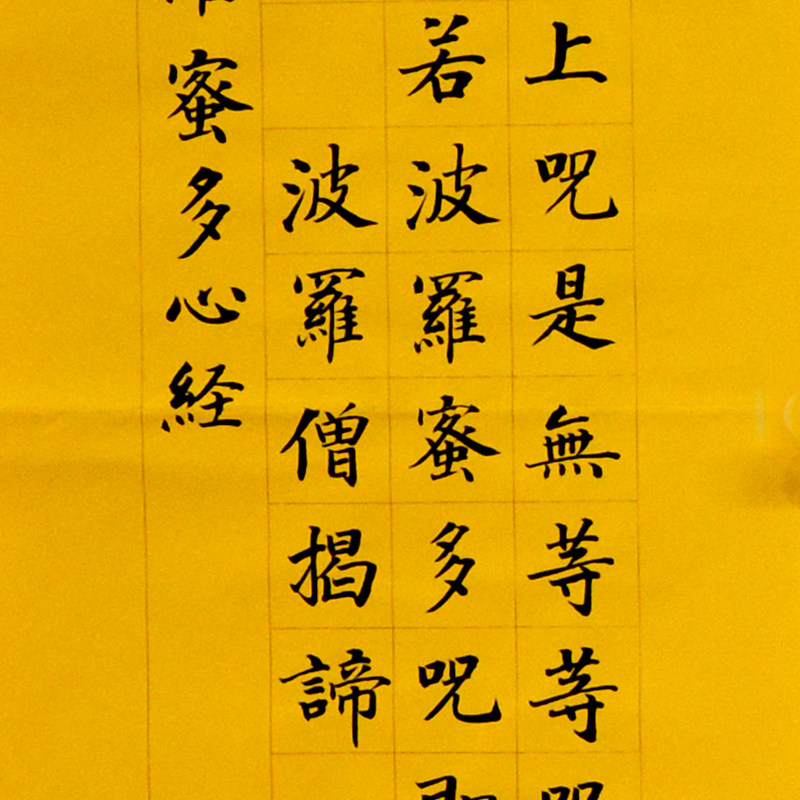 上呪是無等等呪
若波羅蜜多呪即
波羅僧揭諦
蜜多心経